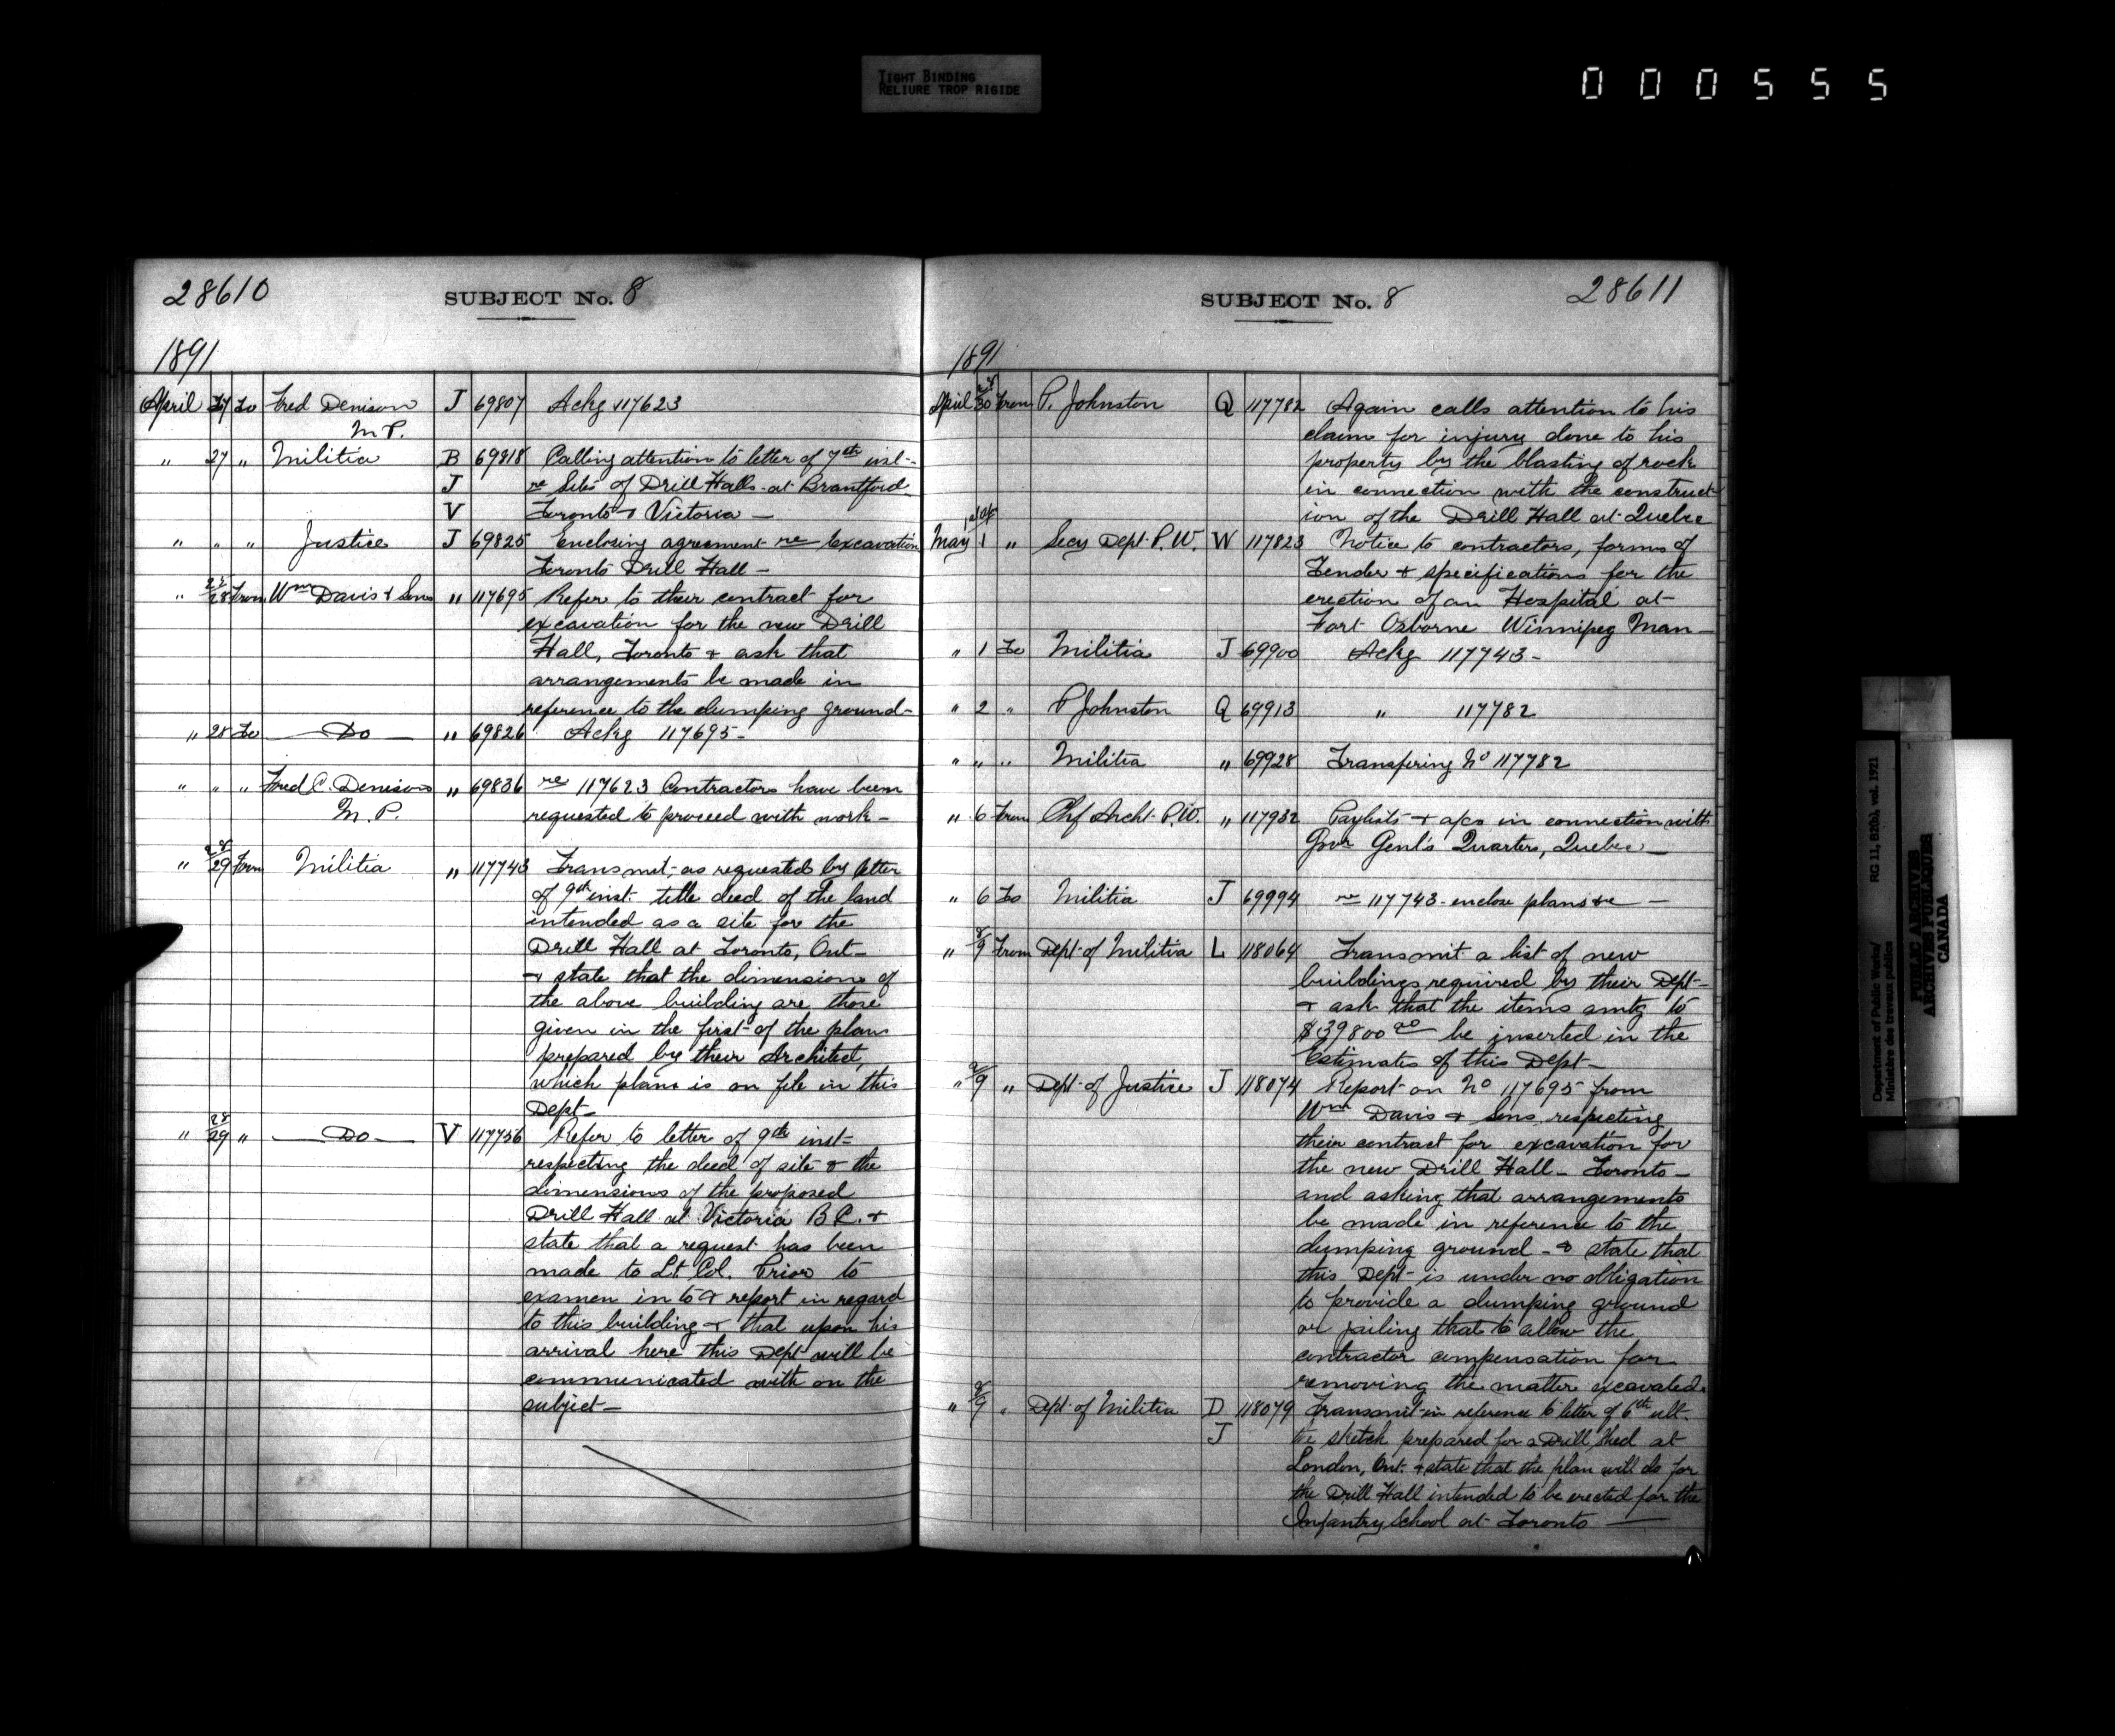 TIGHT BINDING
RELIURE TROP RIGIDE
000555
28610
SUBJECT No. 8
1891
April 27 To Fred Denison J 69807 Ackg 117623
M P.
" 27 " Militia B 69818 Calling attention to letter of 7th inst-
J re Sites of Drill Halls at Brantford
V Toronto & Victoria —
" " " Justice J 69825 Enclosing agreement re Excavation
Toronto Drill Hall —
" 28/28 From Wm Davis & Sons " 117695 Refer to their contract for
excavation for the new Drill
Hall, Toronto & ask that
arrangements be made in
reference to the dumping ground-
" 28 To — Do — " 69826 Ackg 117695-
" " " Fred C. Denison " 69836 re 117623 Contractors have been
M. P. requested to proceed with work -
" 28/29 From Militia " 117743 Transmit, as requested by letter
of 9th inst. title deed of the land
intended as a site for the
Drill Hall at Toronto, Ont-
& state that the dimensions of
the above building are those
given in the first of the plans
prepared by their Architect,
which plans is on file in this
Dept-
" 28/29 " — Do — V 117756 Refer to letter of 9th inst-
respecting the deed of site & the
dimensions of the proposed
Drill Hall at Victoria B C. &
state that a request has been
made to Lt Col. Prior to
examen in to & report in regard
to this building & that upon his
arrival here this Dept will be
communicated with on the
subject —
SUBJECT No. 8
28611
1891
April 30 From P. Johnston Q 117782 Again calls attention to his
claim for injury done to his
property by the blasting of rock
in connection with the construct-
ion of the Drill Hall at Quebec
May 1 " Secy Dept P. W. W 117823 Notice to contractors, forms of
Tender & specifications for the
erection of an Hospital at
Fort Osborne Winnipeg Man —
" 1 To Militia J 69900 Ackg 117743 -
" 2 " P Johnston Q 69913 " 117782
" " " Militia " 69928 Transfering No 117782
" 6 From Chf Archt P. W. " 117932 Paylists & a/cs in connection with
Govr Genl's Quarters, Quebec —
" 6 To Militia J 69994 re 117743 - enclose plans &c —
" 8/9 From Dept of Militia L 118064 Transmit a list of new
buildings required by their Dept-
& ask that the items amtg to
$39800 00 be inserted in the
Estimates of this Dept-
" 9 " Dept of Justice J 118074 Report on No 117695 from
Wm Davis & Sons, respecting
their contract for excavation for
the new Drill Hall - Toronto -
and asking that arrangements
be made in reference to the
dumping ground - & state that
this Dept is under no obligation
to provide a dumping ground
or failing that to allow the
contractor compensation for
removing the matter excavated.
" 8/9 " Dept of Militia D 118079 Transmit in reference to letter of 6th ult.
J the sketch prepared for a Drill Shed at
London, Ont. & state that the plan will do for
the Drill Hall intended to be erected for the
Infantry School at Toronto —
Department of Public Works/
Ministère des travaux publics
RG 11, B2(b), vol. 1921
PUBLIC ARCHIVES
ARCHIVES PUBLIQUES
CANADA